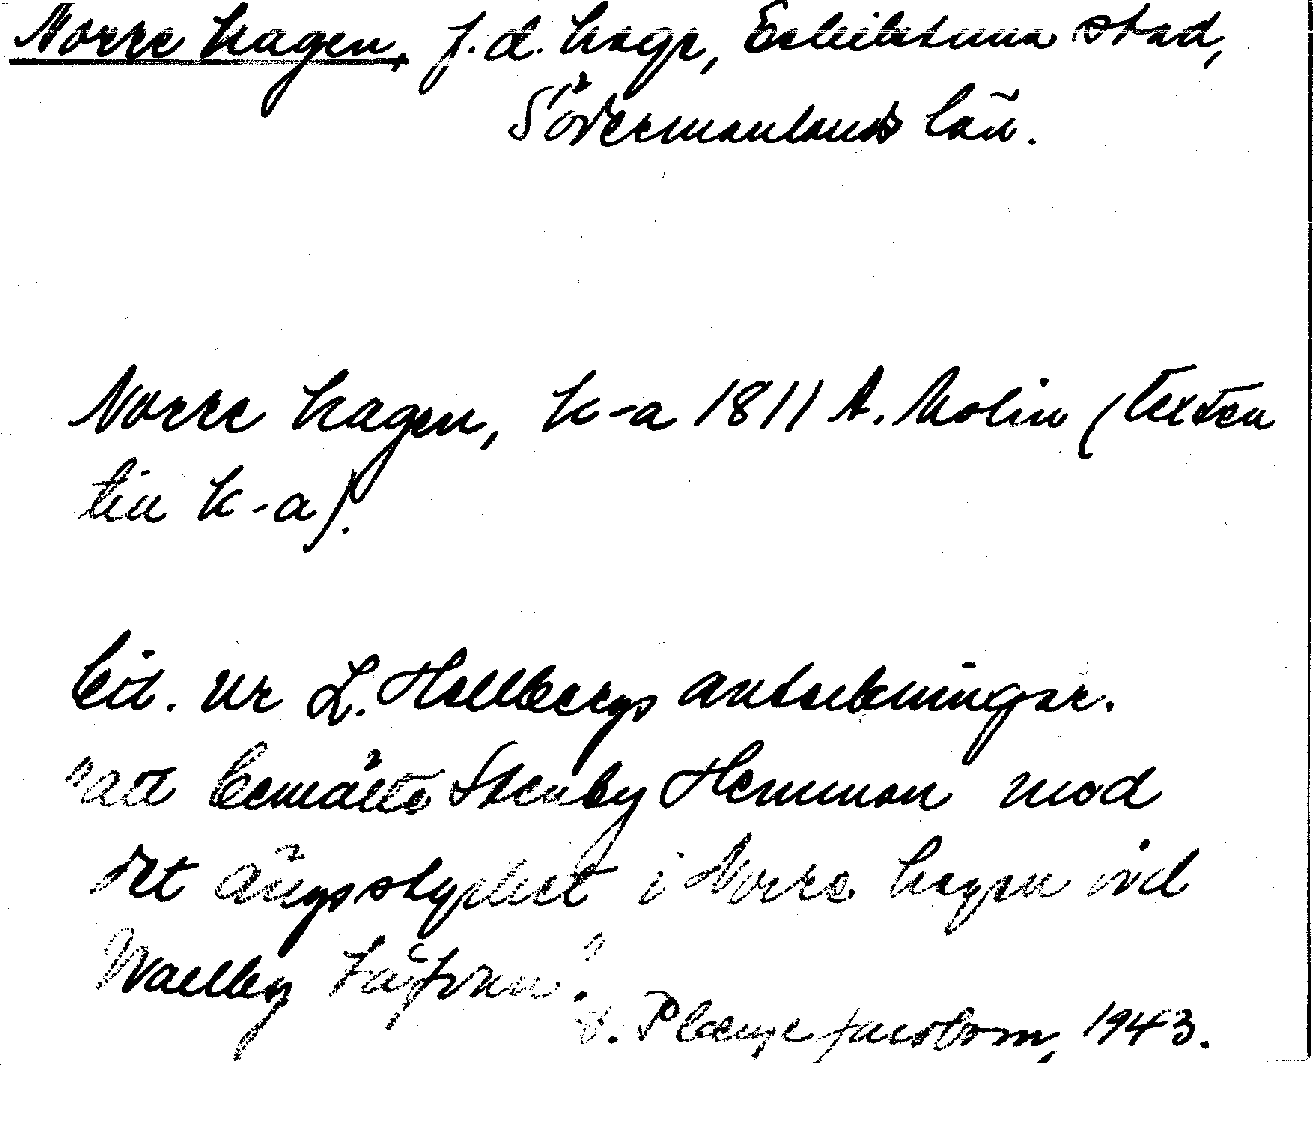 Norre hagen, f.d. hage, Eskilstuna stad,
Södermanlands län.
Norre hagen, k-a 1811 A. Molin (texten
till k-a).
Cit. ur L. Hellbergs anteckningar.
"att bemälte Stenby Hemman mod
det ängsstycket i Norre hagen vid
Waelby
S. Plenge Jacobson, 1943.